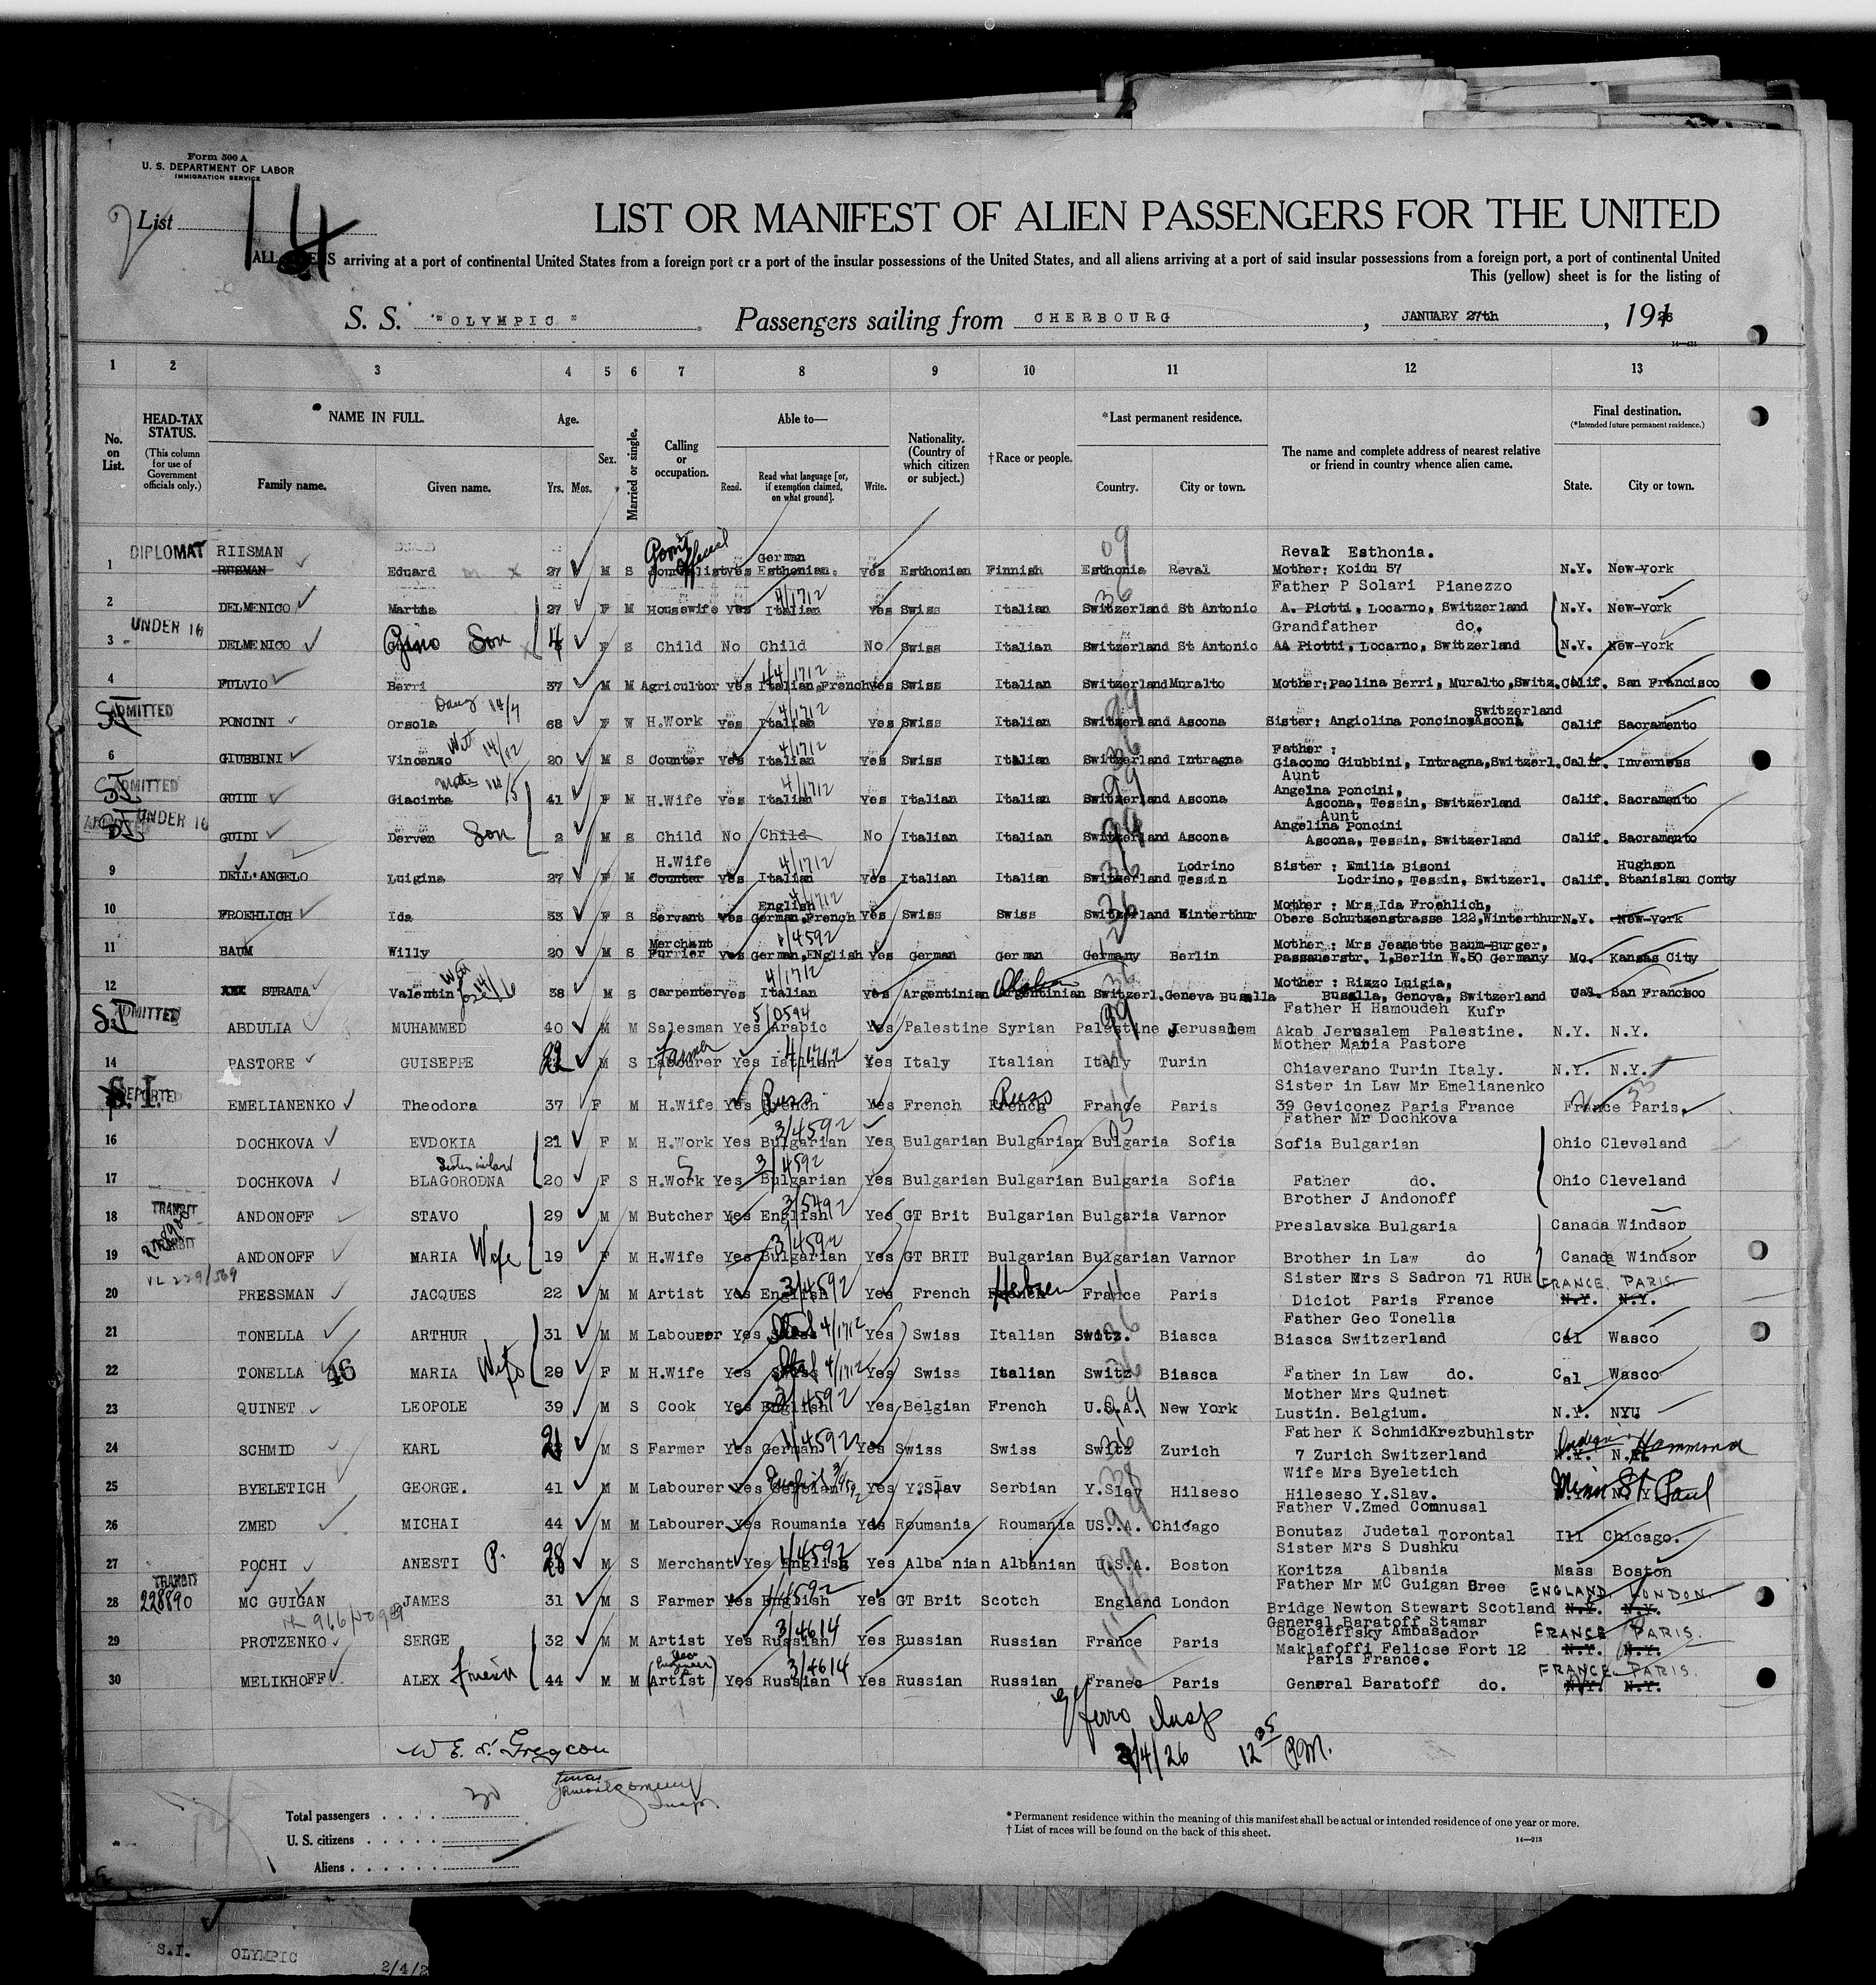 Form 500 A
U. S. DEPARTMENT OF LABOR
IMMIGRATION SERVICE
List 14
LIST OR MANIFEST OF ALIEN PASSENGERS FOR THE UNITED
ALL arriving at a port of continental United States from a foreign port or a port of the insular possessions of the United States, and all aliens arriving at a port of said insular possessions from a foreign port, a port of continental United
This (yellow) sheet is for the listing of
S. S. "OLYMPIC" Passengers sailing from CHERBOURG, JANUARY 27th, 1926
1 2 3 4 5 6 7 8 9 10 11 12 13
No. on List.
HEAD-TAX STATUS. (This column for use of Government officials only.)
NAME IN FULL. Family name. Given name.
Age. Yrs. Mos.
Sex.
Married or single.
Calling or occupation.
Able to— Read. Read what language [or, if exemption claimed, on what ground]. Write.
Nationality. (Country of which citizen or subject.)
†Race or people.
*Last permanent residence. Country. City or town.
The name and complete address of nearest relative or friend in country whence alien came.
Final destination. (*Intended future permanent residence.) State. City or town.
Reval Esthonia.
1 DIPLOMAT RIISMAN Eduard 27 M S Gov't Official yes German Esthonian. yes Esthonian Finnish Esthonia Reval Mother: Koidu 57 N.Y. New-york
Father P Solari Pianezzo
2 DELMENICO Martha 27 F M Housewife Yes Italian 4/1712 Yes Swiss Italian Switzerland St Antonio A. Piotti, Locarno, Switzerland N.Y. New-york
Grandfather do.
3 UNDER 16 DELMENICO Gino Son 4 F S Child No Child No Swiss Italian Switzerland St Antonio AA Piotti, Locarno, Switzerland N.Y. New-york
4 FULVIO Berri 37 M M Agricultor yes Italian,French yes Swiss Italian Switzerland Muralto Mother:Paolina Berri, Muralto,Switz. Calif. San Francisco
Switzerland
ADMITTED PONCINI Orsola 68 F W H.Work yes Italian 4/1712 Yes Swiss Italian Switzerland Ascona Sister: Angiolina Poncino,Ascona Calif Sacramento
Father :
6 GIUBBINI Vincenzo 20 M S Counter yes Italian 4/1712 Yes Swiss Italian Switzerland Intragna Giacomo Giubbini, Intragna,Switzerl. Calif. Inverness
Aunt
Angelna Poncini,
SI ADMITTED GUIDI Giacinta 41 F M H.Wife yes Italian 4/1712 Yes Italian Italian Switzerland Ascona Ascona, Tessin, Switzerland Calif. Sacramento
Aunt
Angelina Poncini
UNDER 16 GUIDI Derven Son 2 M S Child No Child No Italian Italian Switzerland Ascona Ascona, Tessin, Switzerland Calif. Sacramento
H.Wife Lodrino Sister : Emilia Bisoni Hughson
9 DELL'ANGELO Luigina 27 F M Counter yes Italian 4/1712 Yes Italian Italian Switzerland Tessin Lodrino, Tessin, Switzerl. Calif. Stanislau Conty
English Mother : Mrs Ida Froehlich,
10 FROEHLICH Ida 33 F S Servant yes German,French Yes Swiss Swiss Switzerland Winterthur Obere Schutzenstrasse 122,Winterthur N.Y. New-york
Merchant Mother : Mrs Jeanette Baum-Burger,
11 BAUM Willy 20 M S Furrier yes German,ENglish yes German German Germany Berlin Passauerstr. 1,Berlin W.50 Germany Mo. Kansas City
Mother : Rizzo Luigia,
12 STRATA Valentin Jose 38 M S Carpenter yes Italian 4/1712 yes Argentinian Argentinian Switzerl. Geneva Busalla Busalla, Genova, Switzerland Cal. San Francisco
Father H Hamoudeh Kufr
SI ADMITTED ABDULIA MUHAMMED 40 M M Salesman Yes Arabic Yes Palestine Syrian Palestine Jerusalem Akab Jerusalem Palestine. N.Y. N.Y.
Mother Maria Pastore
14 PASTORE GUISEPPE 22 M S Labourer Farmer Yes Iatlian 4/1712 Yes Italy Italian Italy Turin Chiaverano Turin Italy. N.Y. N.Y.
Sister in Law Mr Emelianenko
S.I. DEPORTED EMELIANENKO Theodora 37 F M H.Wife Yes French Russ Yes French French Russ France Paris 39 Geviconez Paris France France Paris.
Father Mr Dochkova
16 DOCHKOVA EVDOKIA 21 F M H.Work Yes Bulgarian 3/4592 Yes Bulgarian Bulgarian Bulgaria Sofia Sofia Bulgarian Ohio Cleveland
Sister in law
17 DOCHKOVA BLAGORODNA 20 F S H.Work Yes Bulgarian 3/4592 Yes Bulgarian Bulgarian Bulgaria Sofia Father do. Ohio Cleveland
Brother J Andonoff
18 TRANSIT ANDONOFF STAVO 29 M M Butcher Yes English Yes GT Brit Bulgarian Bulgaria Varnor Preslavska Bulgaria Canada Windsor
19 TRANSIT ANDONOFF MARIA Wife 19 F M H.Wife Yes Bulgarian 3/4592 Yes GT BRIT Bulgarian Bulgarian Varnor Brother in Law do Canada Windsor
Sister Mrs S Sadron 71 RUE FRANCE PARIS
20 PRESSMAN JACQUES 22 M M Artist Yes English 3/4592 Yes French Hebrew France Paris Diciot Paris France N.Y. N.Y.
Father Geo Tonella
21 TONELLA ARTHUR 31 M M Labourer Yes Ital 4/1712 Yes Swiss Italian Switz. Biasca Biasca Switzerland Cal Wasco
22 TONELLA 46 MARIA Wife 29 F M H.Wife Yes Swiss Ital 4/1712 Yes Swiss Italian Switz Biasca Father in Law do. Cal Wasco
Mother Mrs Quinet
23 QUINET LEOPOLE 39 M S Cook Yes English Yes Belgian French U.S.A. New York Lustin. Belgium. N.Y. NYU
Father K SchmidKrezbuhlstr
24 SCHMID KARL 21 M S Farmer Yes German Yes Swiss Swiss Switz Zurich 7 Zurich Switzerland Indiana Hammond
Wife Mrs Byeletich
25 BYELETICH GEORGE. 41 M M Labourer Yes Serbian Yes Y.Slav Serbian Y.Slav Hilseso Hileseso Y.Slav. Minn St Paul
Father V.Zmed Comnusal
26 ZMED MICHAI 44 M M Labourer Yes Roumania Yes Roumania Roumania US..A. Chicago Bonutaz Judetal Torontal Ill Chicago.
Sister Mrs S Dushku
27 POCHI ANESTI P. 28 M S Merchant Yes English 1/4592 Yes Albanian Albanian U.S.A. Boston Koritza Albania Mass Boston
Father Mr MC Guigan Bree ENGLAND. LONDON.
28 TRANSIT 228890 MC GUIGAN JAMES 31 M S Farmer Yes English 1/4592 Yes GT Brit Scotch England London Bridge Newton Stewart Scotland N.Y. N.Y.
General Baratoff Stamar
Bogoleffsky Ambasador FRANCE PARIS.
29 PROTZENKO SERGE 32 M M Artist Yes Russian 3/4614 Yes Russian Russian France Paris Maklafoffi Felicse Fort 12 N.Y. N.Y.
Paris France. FRANCE PARIS.
30 MELIKHOFF ALEX Friend 44 M M (Artist) Yes Russian 3/4614 Yes Russian Russian Franec Paris General Baratoff do. N.Y. N.Y.
2/4/26 12 35 P.M.
Total passengers 30
U. S. citizens
Aliens
* Permanent residence within the meaning of this manifest shall be actual or intended residence of one year or more.
† List of races will be found on the back of this sheet.
14—213
S.I. OLYMPIC 2/4/2